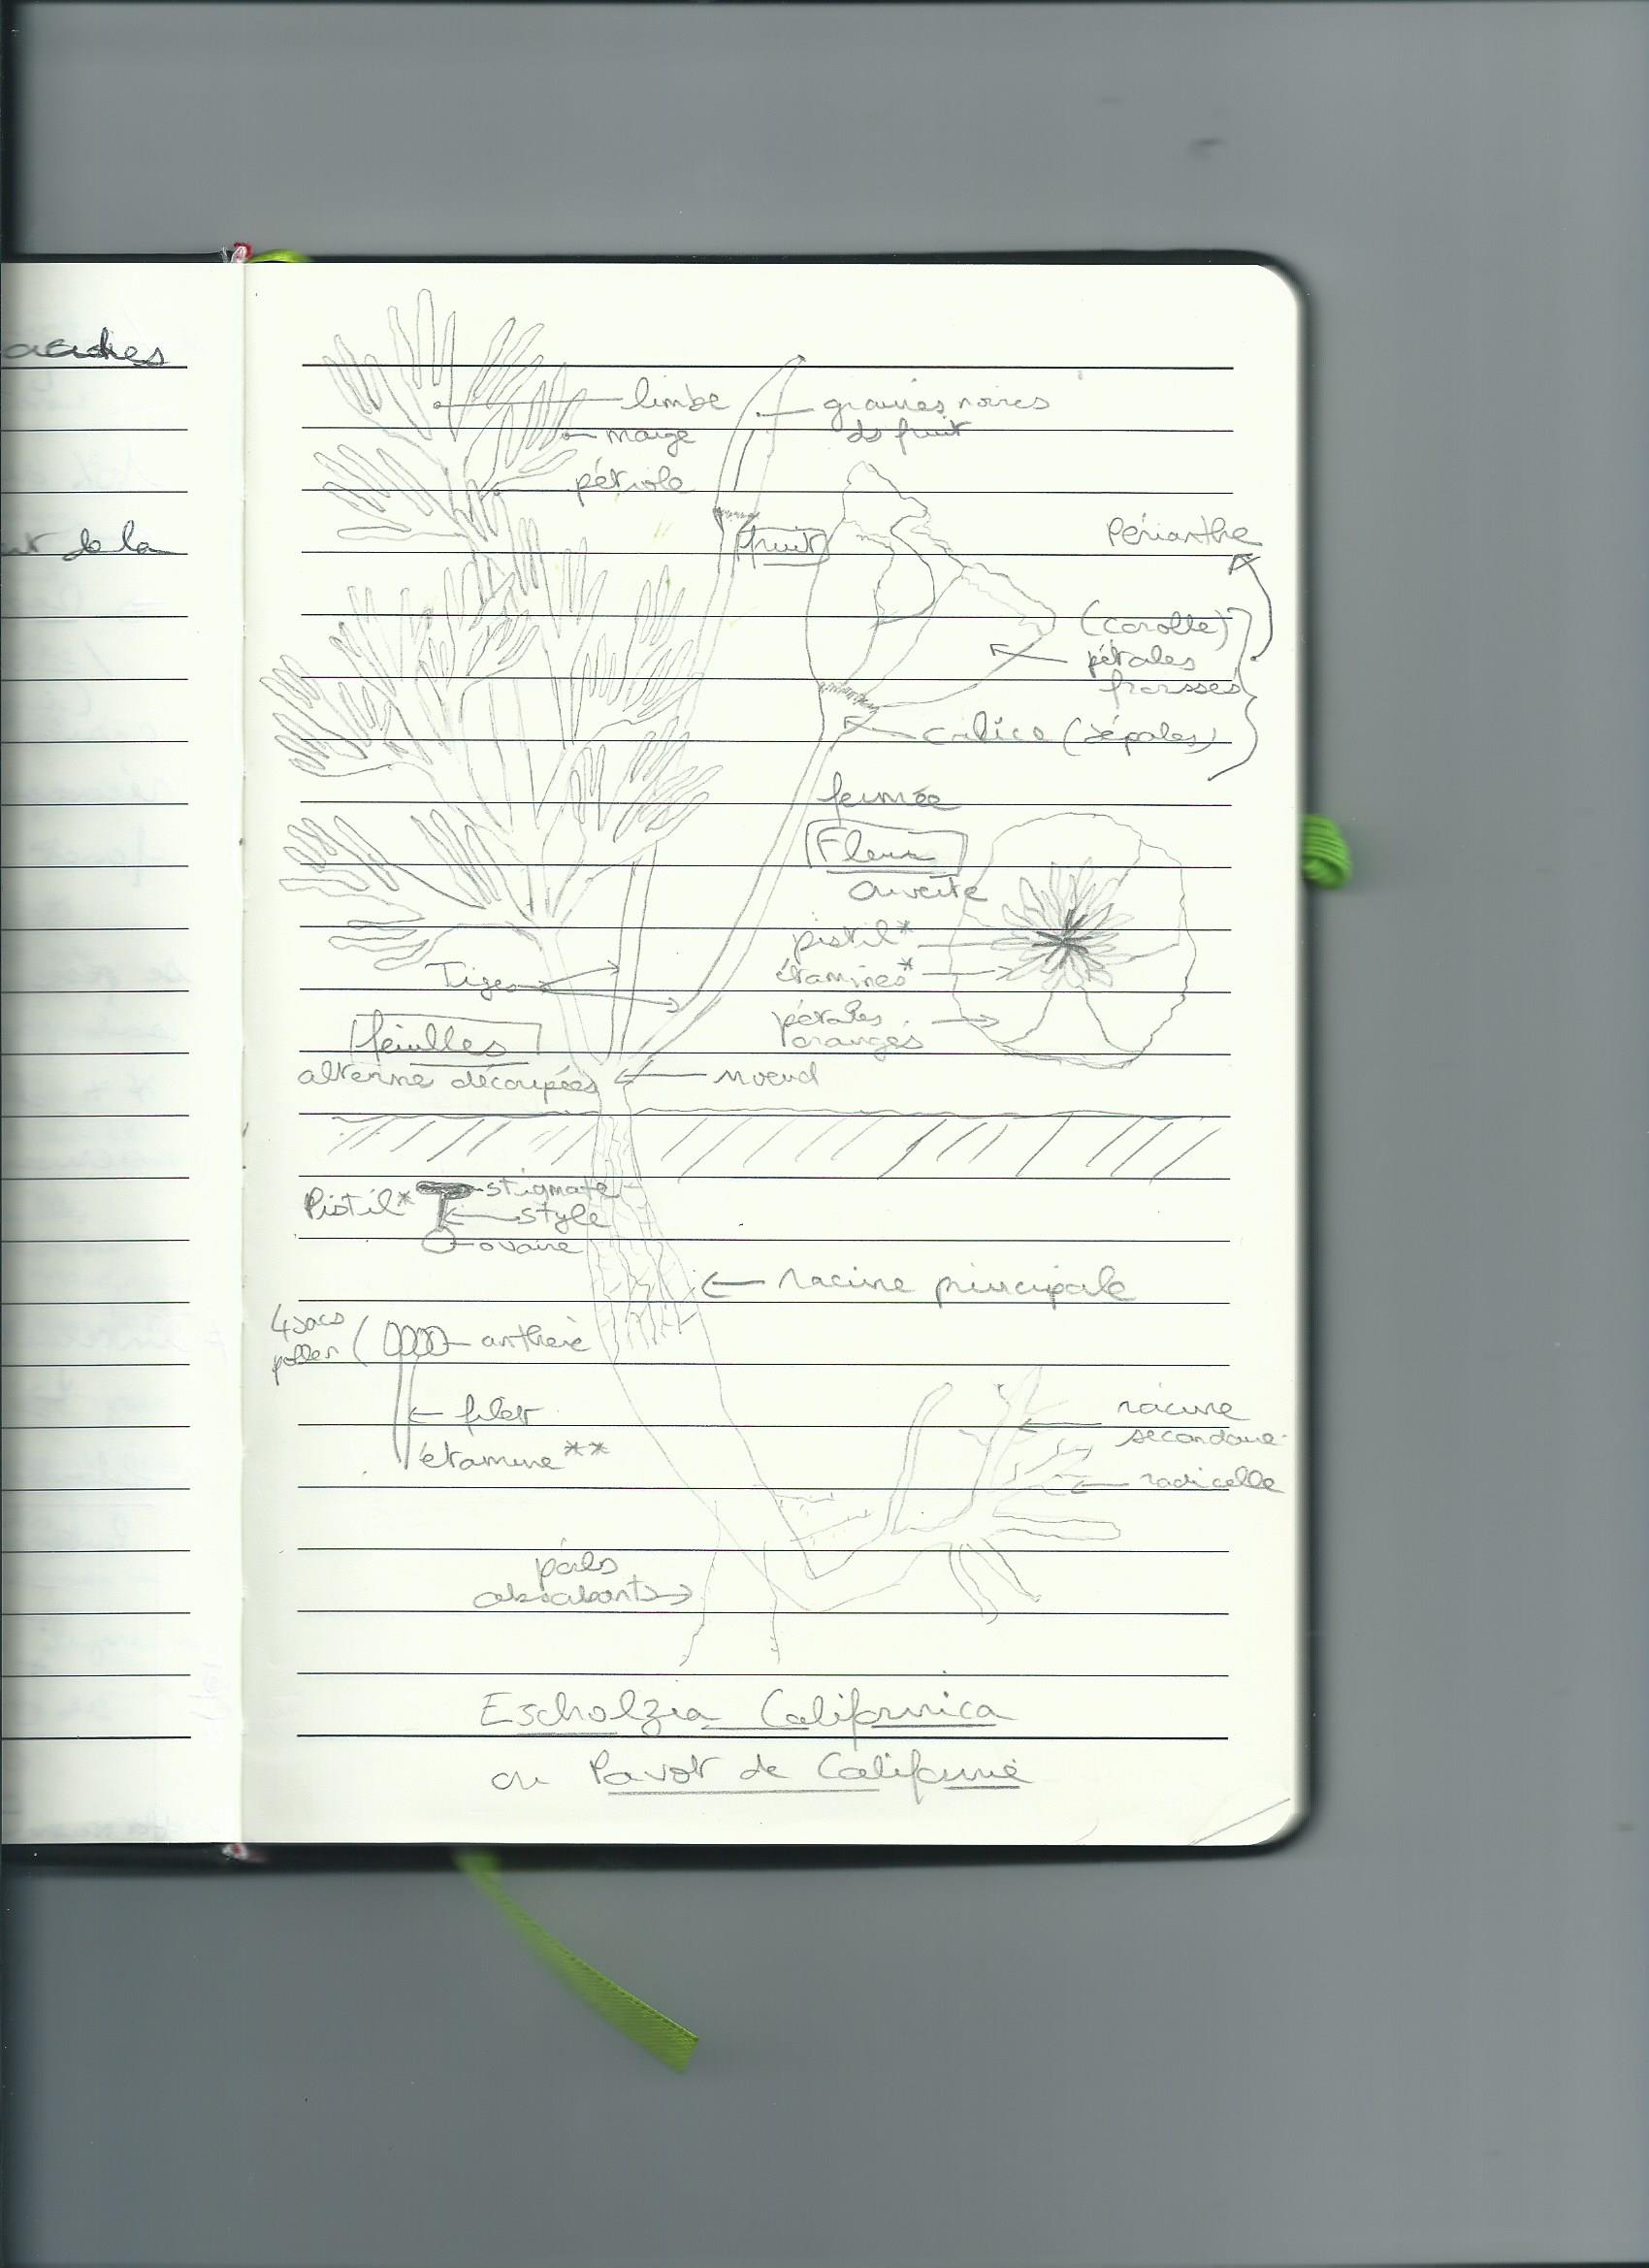 acées
nt de la
limbe
marge
pétiole
graines noires
ds fruit
fruit
Périanthe
(corolle)
pétales
froissés
calice (sépales)
fermée
Fleur
ouverte
pistil*
étamines*
pétales
orangés
Tiges
feuilles
alterne découpées
noeud
Pistil*
stigmate
style
ovaire
racine principale
4 sacs
pollen
anthère
filet
étamine**
racine
secondaire
radicelle
poils
absorbants
Escholzia Californica
ou Pavot de Californie